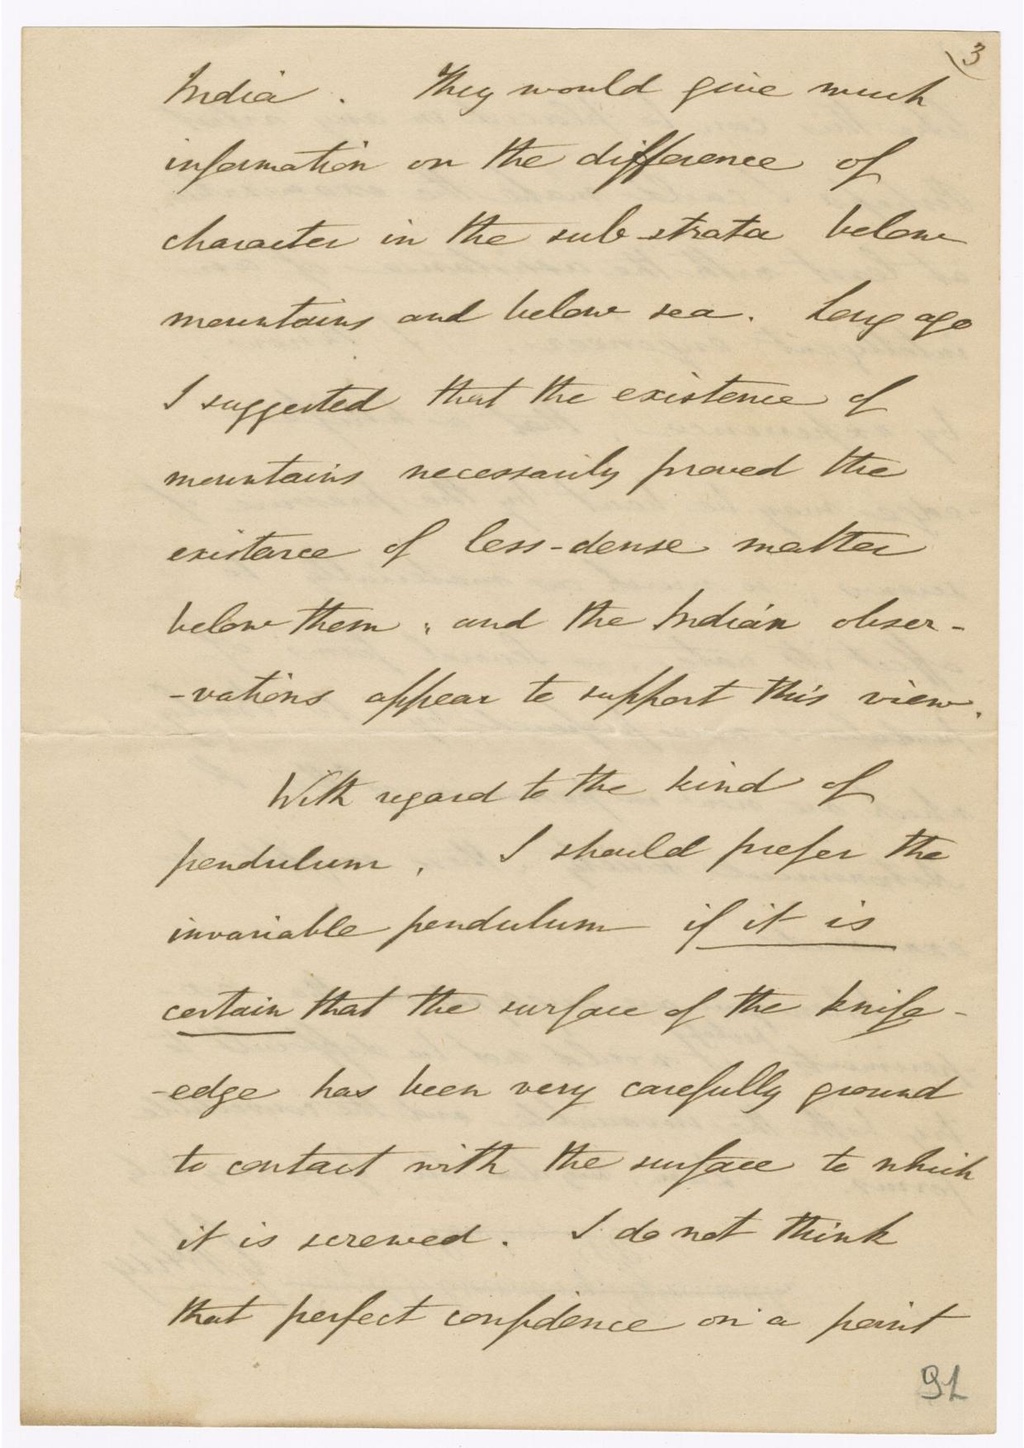 3
India. They would give much
information on the difference of
character in the sub-strata below
mountains and below sea. Long ago
I suggested that the existence of
mountains necessarily proved the
existence of less-dense matter
below them, and the Indian obser-
-vations appear to support this view.
With regard to the kind of
pendulum. I should prefer the
invariable pendulum if it is
certain that the surface of the knife-
-edge has been very carefully ground
to contact with the surface to which
it is screwed. I do not think
that perfect confidence on a point
91